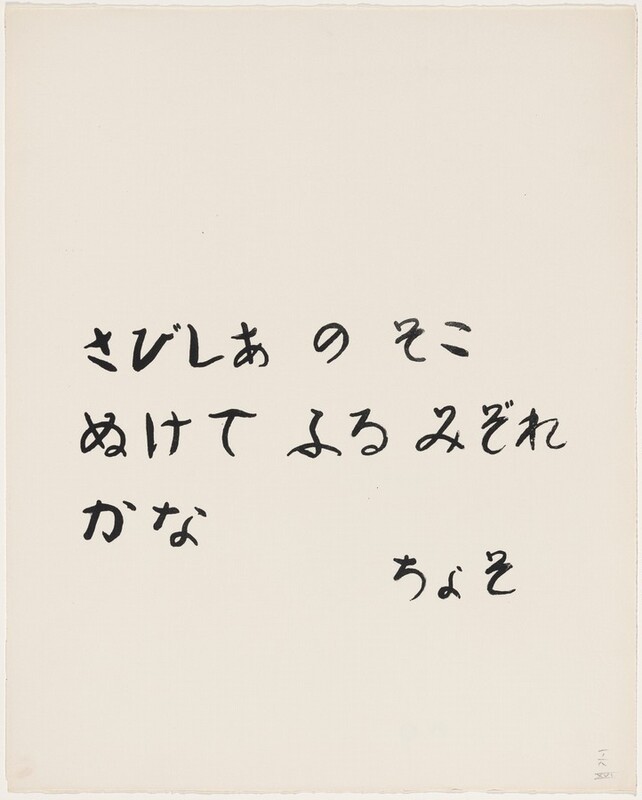 さびしあ の そこ
ぬけて ふる みぞれ
かな
ちょそ